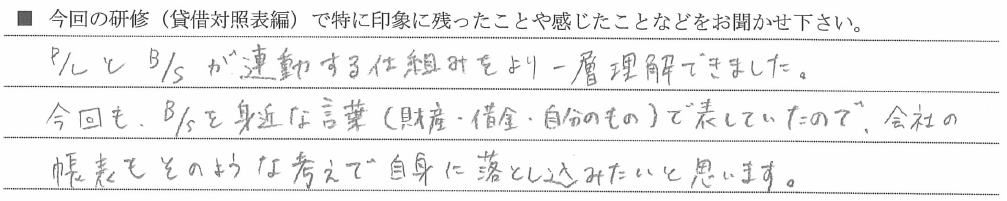 ■ 今回の研修（貸借対照表編）で特に印象に残ったことや感じたことなどをお聞かせ下さい。
P/LとB/Sが連動する仕組みをより一層理解できました。
今回も、B/Sを身近な言葉（財産・借金・自分のもの）で表していたので、会社の
帳表もそのような考えで自身に落とし込みたいと思います。